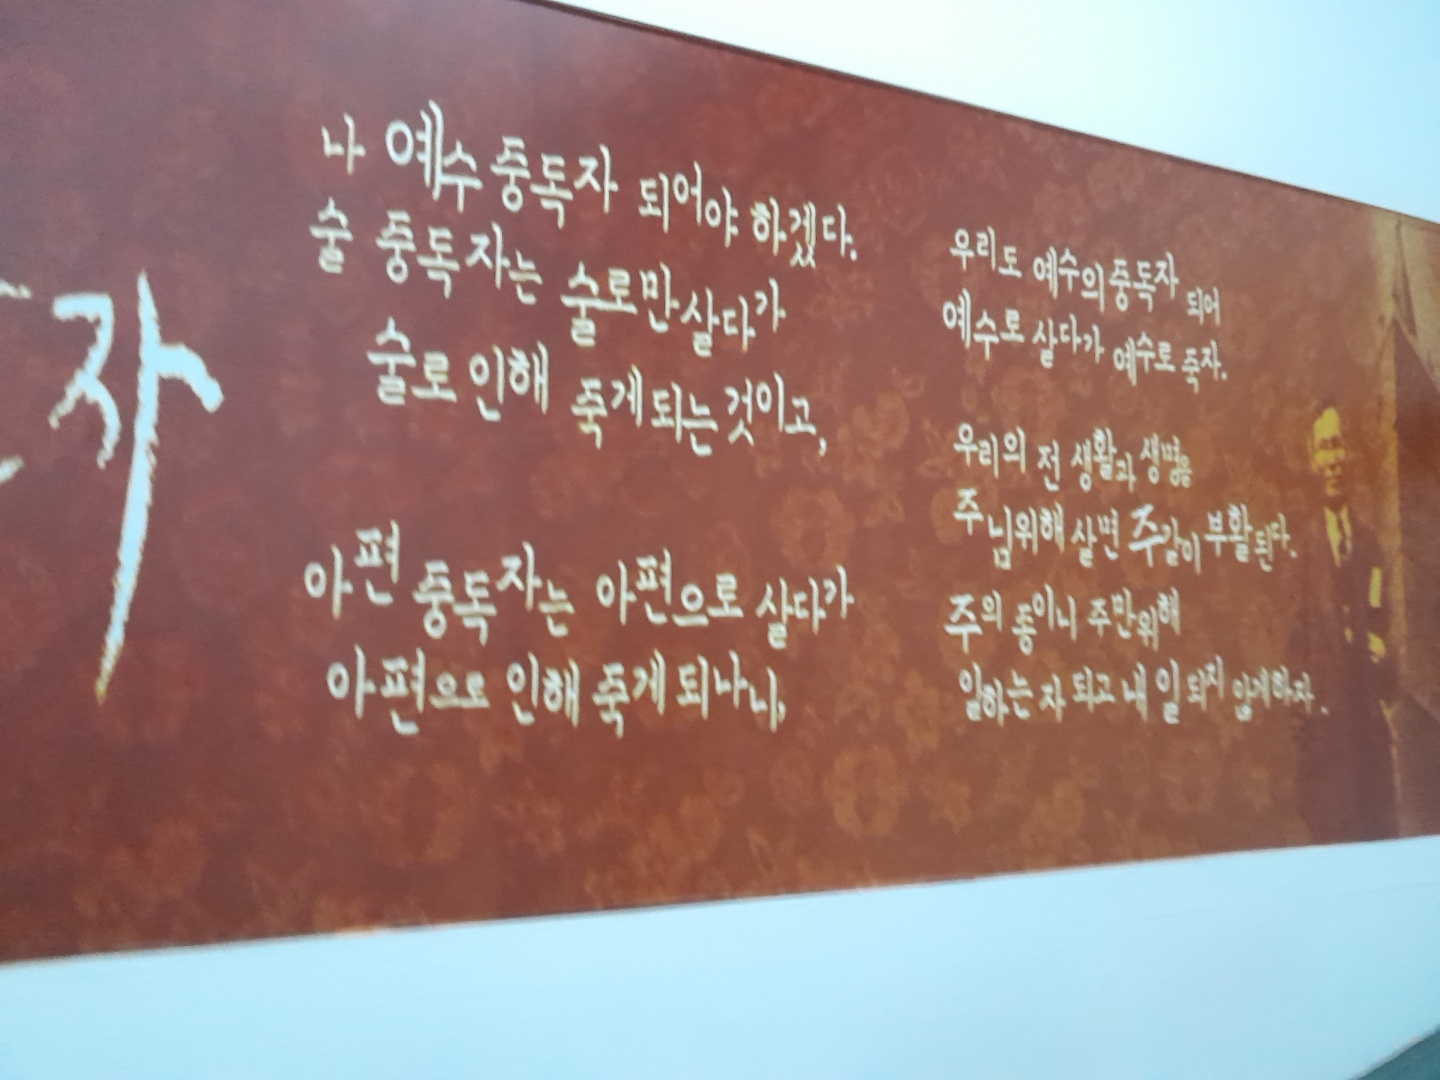 자
나 예수 중독자 되어야 하겠다.
술 중독자는 술로만 살다가
술로 인해 죽게 되는 것이고,
아편 중독자는 아편으로 살다가
아편으로 인해 죽게 되나니,
우리도 예수의 중독자 되어
예수로 살다가 예수로 죽자.
우리의 전 생활과 생명을
주님위해 살면 주같이 부활된다.
주의 종이니 주만위해
일하는 자 되고 내 일 되지 않게하자.